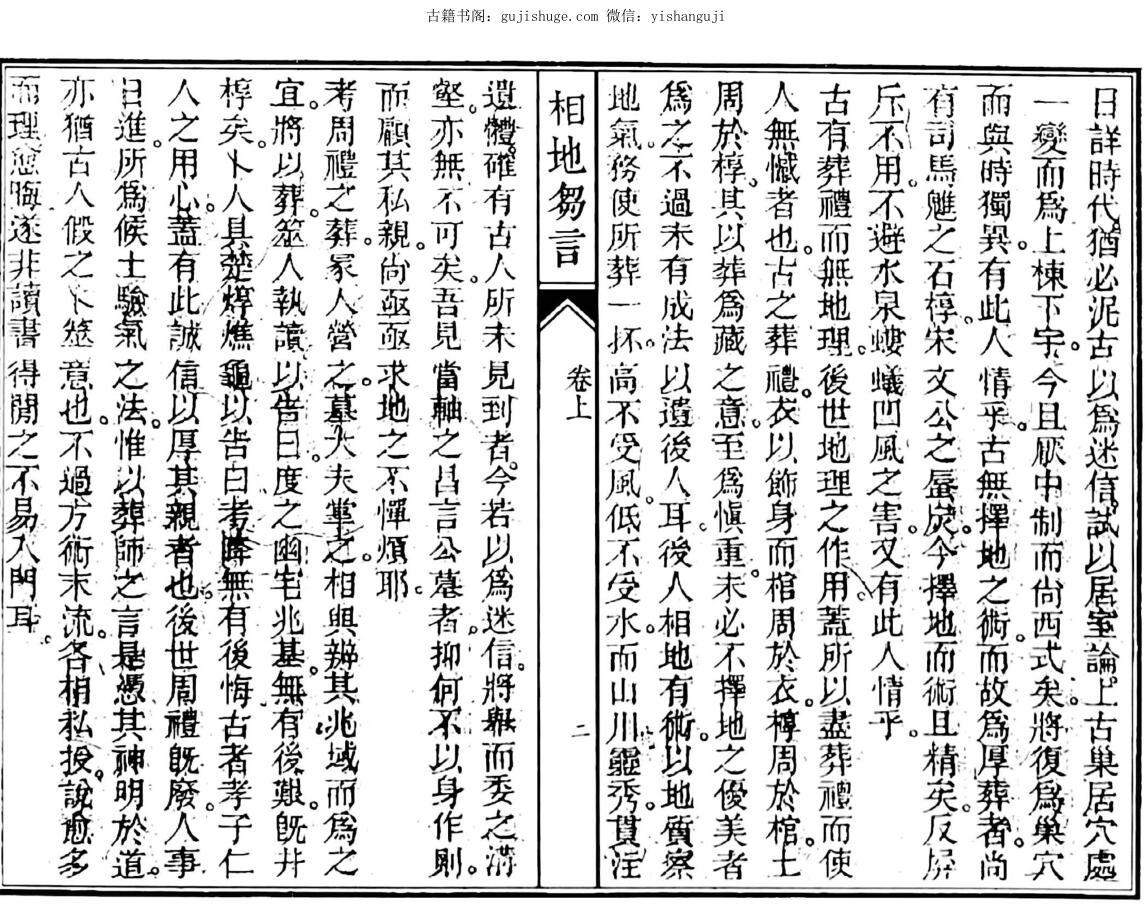 古籍书阁：gujishuge.com 微信：yishanguji
日詳時代。猶必泥古以爲迷信。試以居室論。上古巢居穴處
一變而爲上棟下宇。今且厭中制而尙西式矣。將復爲巢穴
而與時獨異。有此人情乎。古無擇地之術。而故爲厚葬者。尙
有司馬魋之石椁。宋文公之蜃炭。今擇地而術且精矣。反屏
斥不用。不避水泉螻蟻凹風之害。又有此人情乎。
古有葬禮而無地理。後世地理之作用。蓋所以盡葬禮而使
人無憾者也。古之葬禮。衣以飾身。而棺周於衣。椁周於棺。土
周於椁。其以葬爲藏之意。至爲愼重。未必不擇地之優美者
爲之。不過未有成法以遺後人耳。後人相地有術。以地質察
地氣。務使所葬一抔。高不受風。低不受水。而山川靈秀。貫注
相地芻言
卷上
二
遺體。確有古人所未見到者。今若以爲迷信。將舉而委之溝
壑。亦無不可矣。吾見當軸之昌言公墓者。抑何不以身作則。
而顧其私親。尙亟亟求地之不憚煩耶。
考周禮之葬。冢人營之。墓大夫掌之。相與辨其兆域而爲之
宜。將以葬。筮人執讀以告曰。度之幽宅兆基。無有後艱。旣井
椁矣。卜人具楚焞燋龜以告曰。考降無有後悔。古者孝子仁
人之用心。蓋有此誠信以厚其親者也。後世周禮旣廢。人事
日進。所爲候土驗氣之法。惟以葬師之言是憑。其神明於道
亦猶古人假之卜筮意也。不過方術末流。各相私授。說愈多
而理愈晦。遂非讀書得閒之不易入門耳。